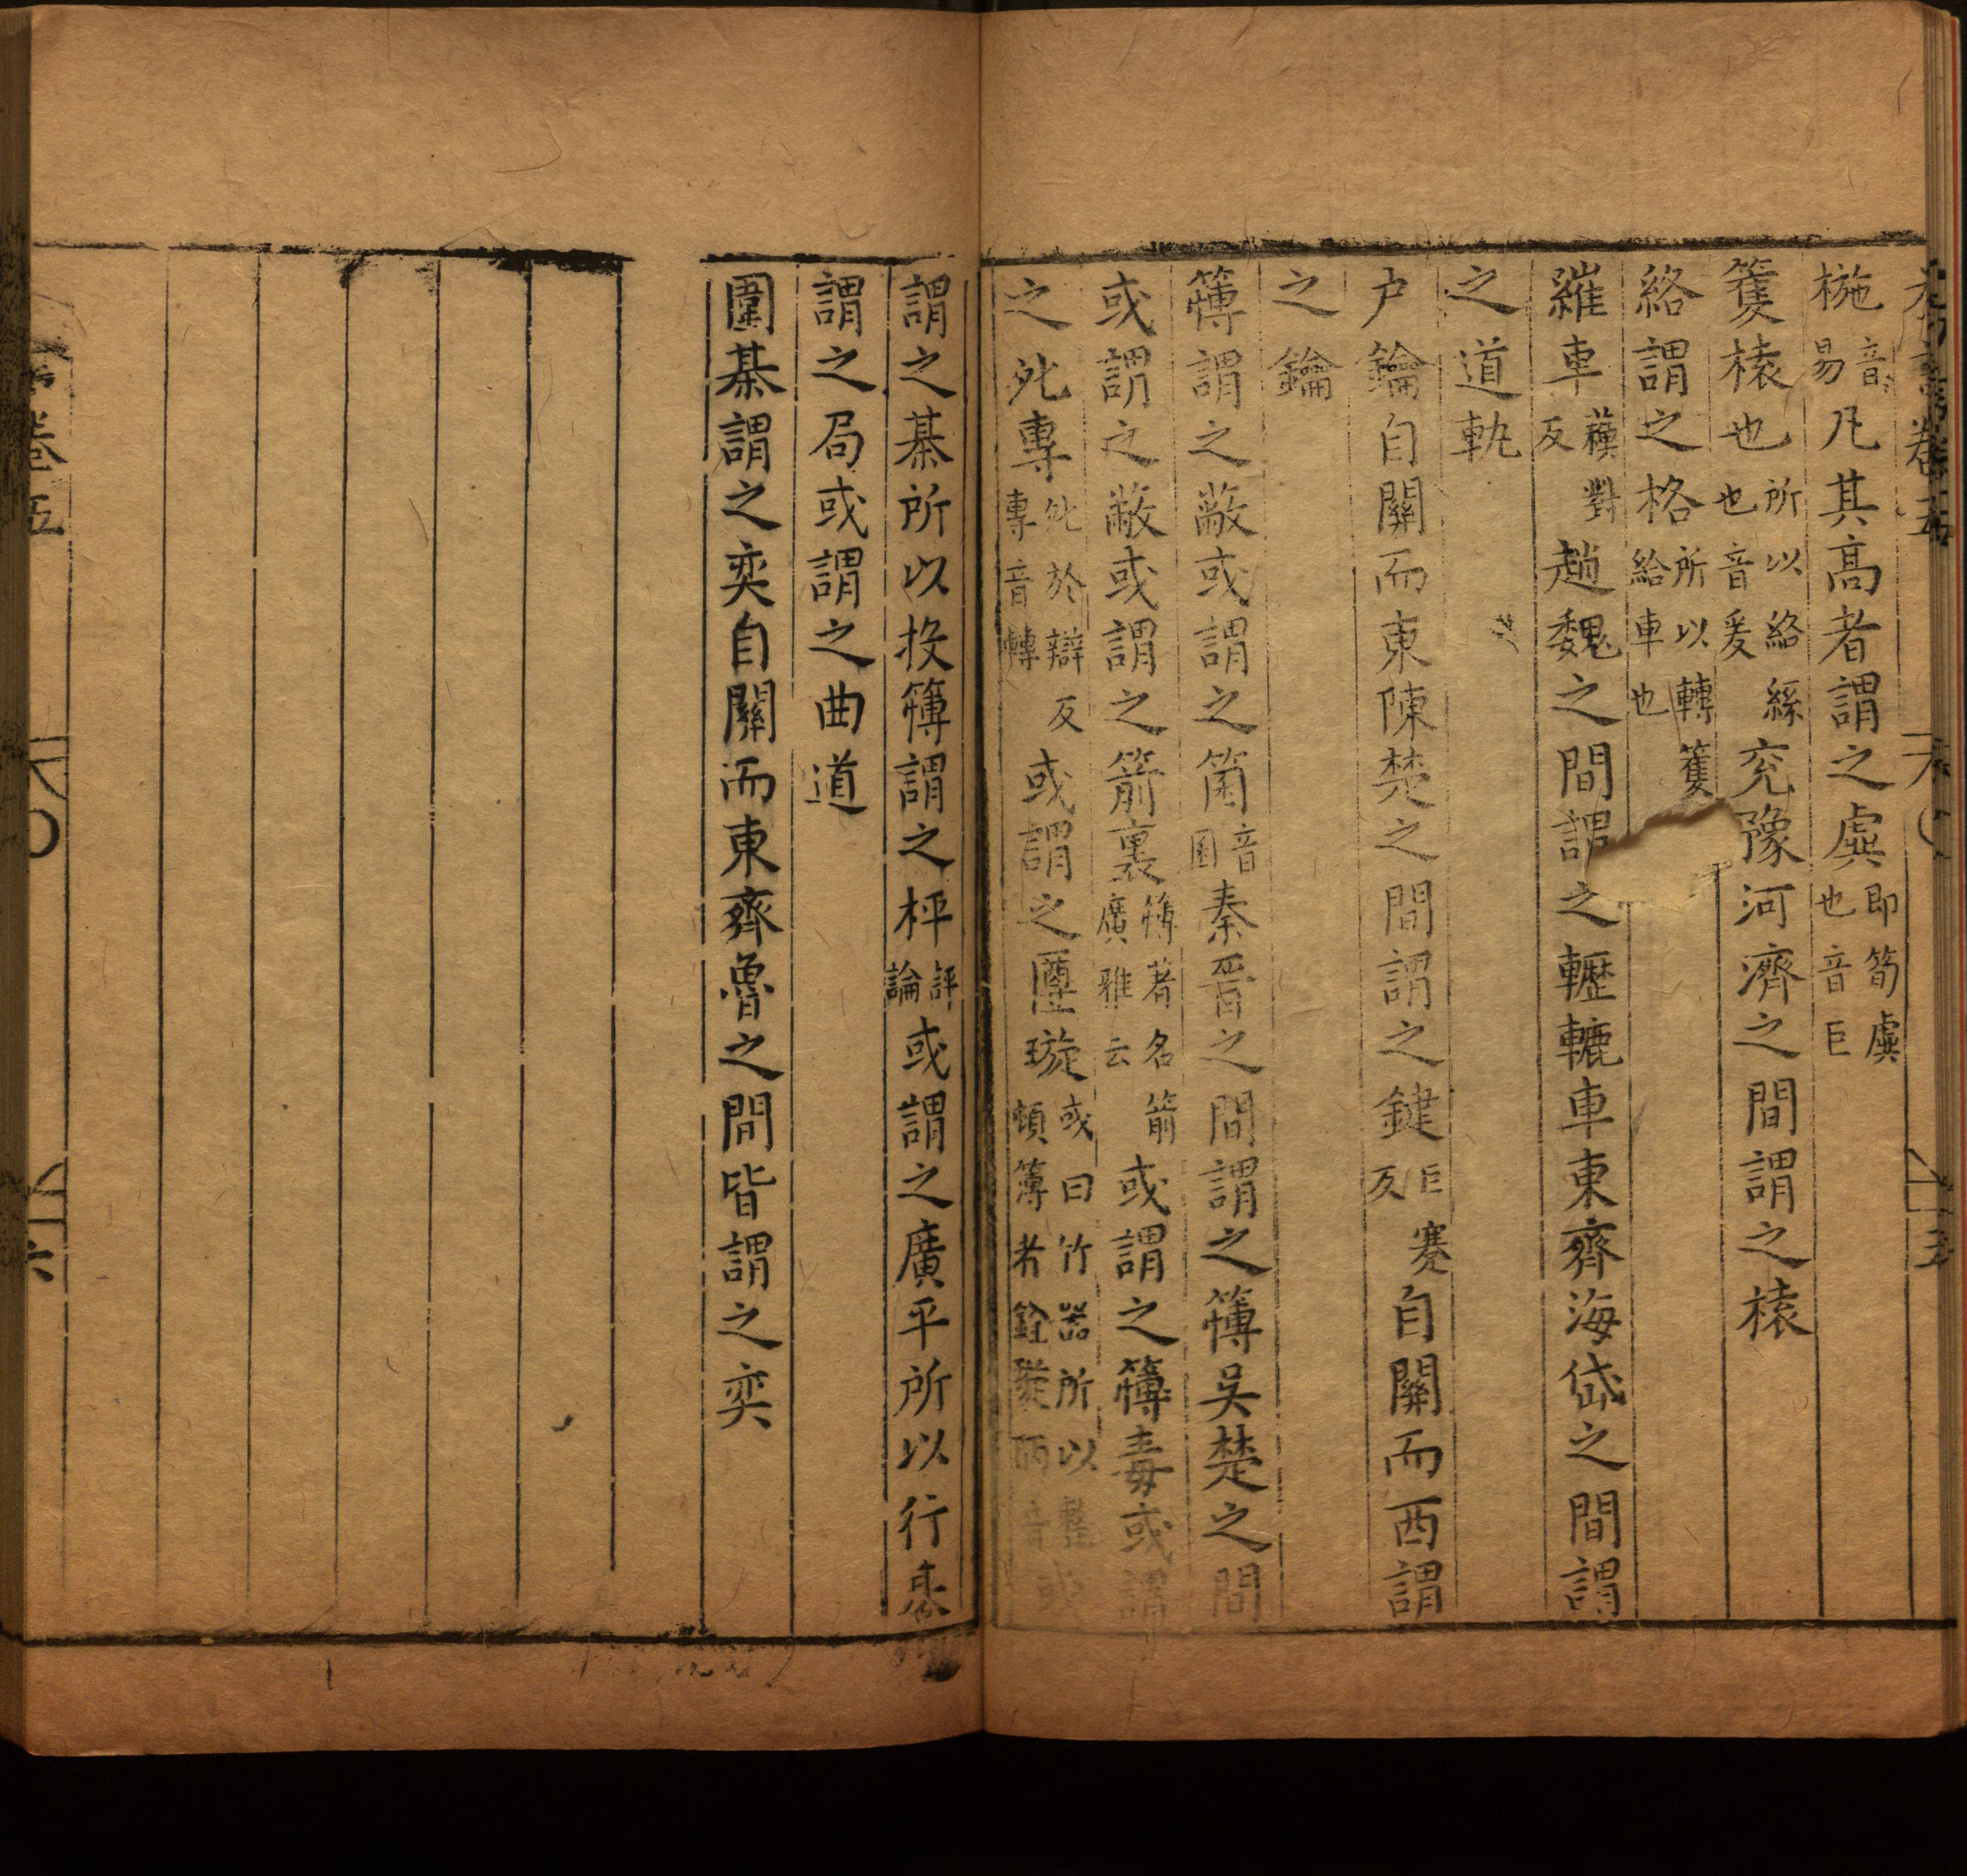 椸音易凡其高者謂之虡即筍虡也音巨
籆榬也所以絡絲也音爰兗豫河濟之間謂之榬
絡謂之格所以轉籆給車也
維車蘓對反趙魏之間謂之轣轆車東齊海岱之間謂
之道軌
户鑰自關而東陳楚之間謂之鍵巨蹇反自關而西謂
之鑰
簙謂之蔽或謂之箘音囷秦晉之間謂之簙吳楚之間
或謂之蔽或謂之箭裏簙著名箭廣雅云或謂之簙毒或謂
之夗專夗於辯反專音轉或謂之匴璇或曰竹器所以整頓簙者銓璇兩音或
謂之棊所以投簙謂之枰評論或謂之廣平所以行棊
謂之局或謂之曲道
圍棊謂之奕自關而東齊魯之間皆謂之奕
卷五
六